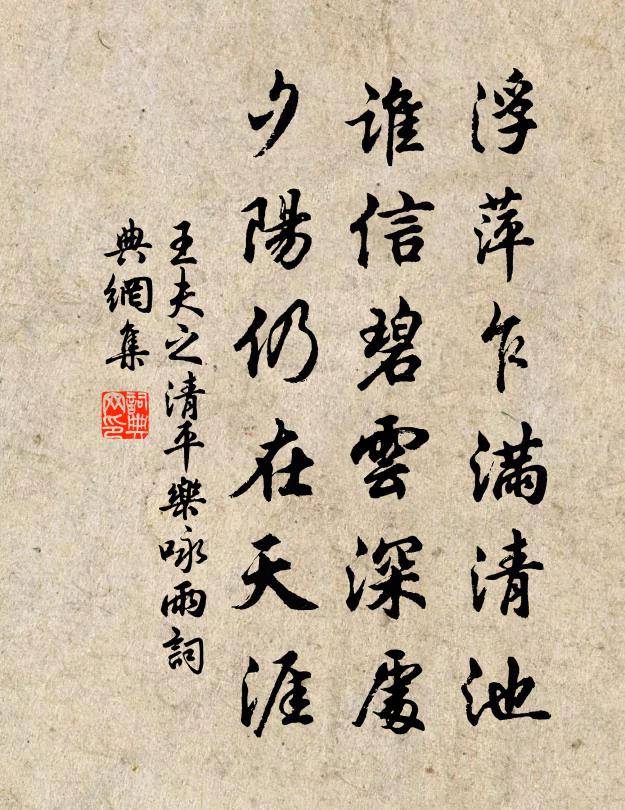 浮萍乍滿清池
誰信碧雲深處
夕陽仍在天涯
王夫之清平樂咏雨詞
典網集
詞典
网印